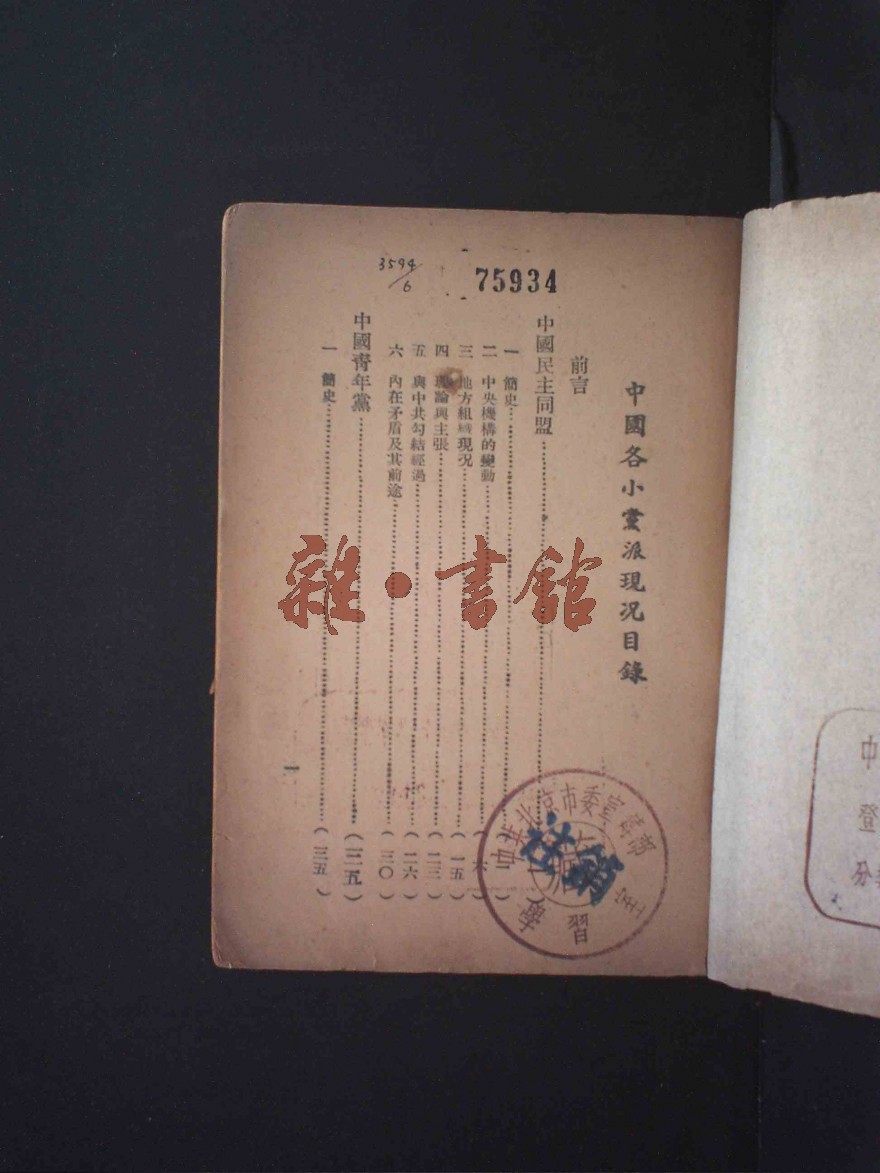 3594/6
75934
中國各小黨派現況目錄
前言
中國民主同盟
一 簡史
二 中央機構的變動
三 地方組織現況
四 理論與主張
五 與中共勾結經過
六 內在矛盾及其前途
中國青年黨
一 簡史
(一五)
(二三)
(二六)
(三〇)
一
雜·書館
中共北京市委宣傳部
習
註銷
中
登
分